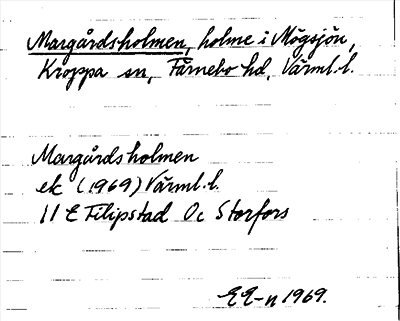 Margårdsholmen, holme i Mögsjön,
Kroppa sn, Färnebo hd, Värml. l.
Margårdsholmen
ek (1969) Värml. l.
11 E Filipstad 0c Storfors
EE-n 1969.